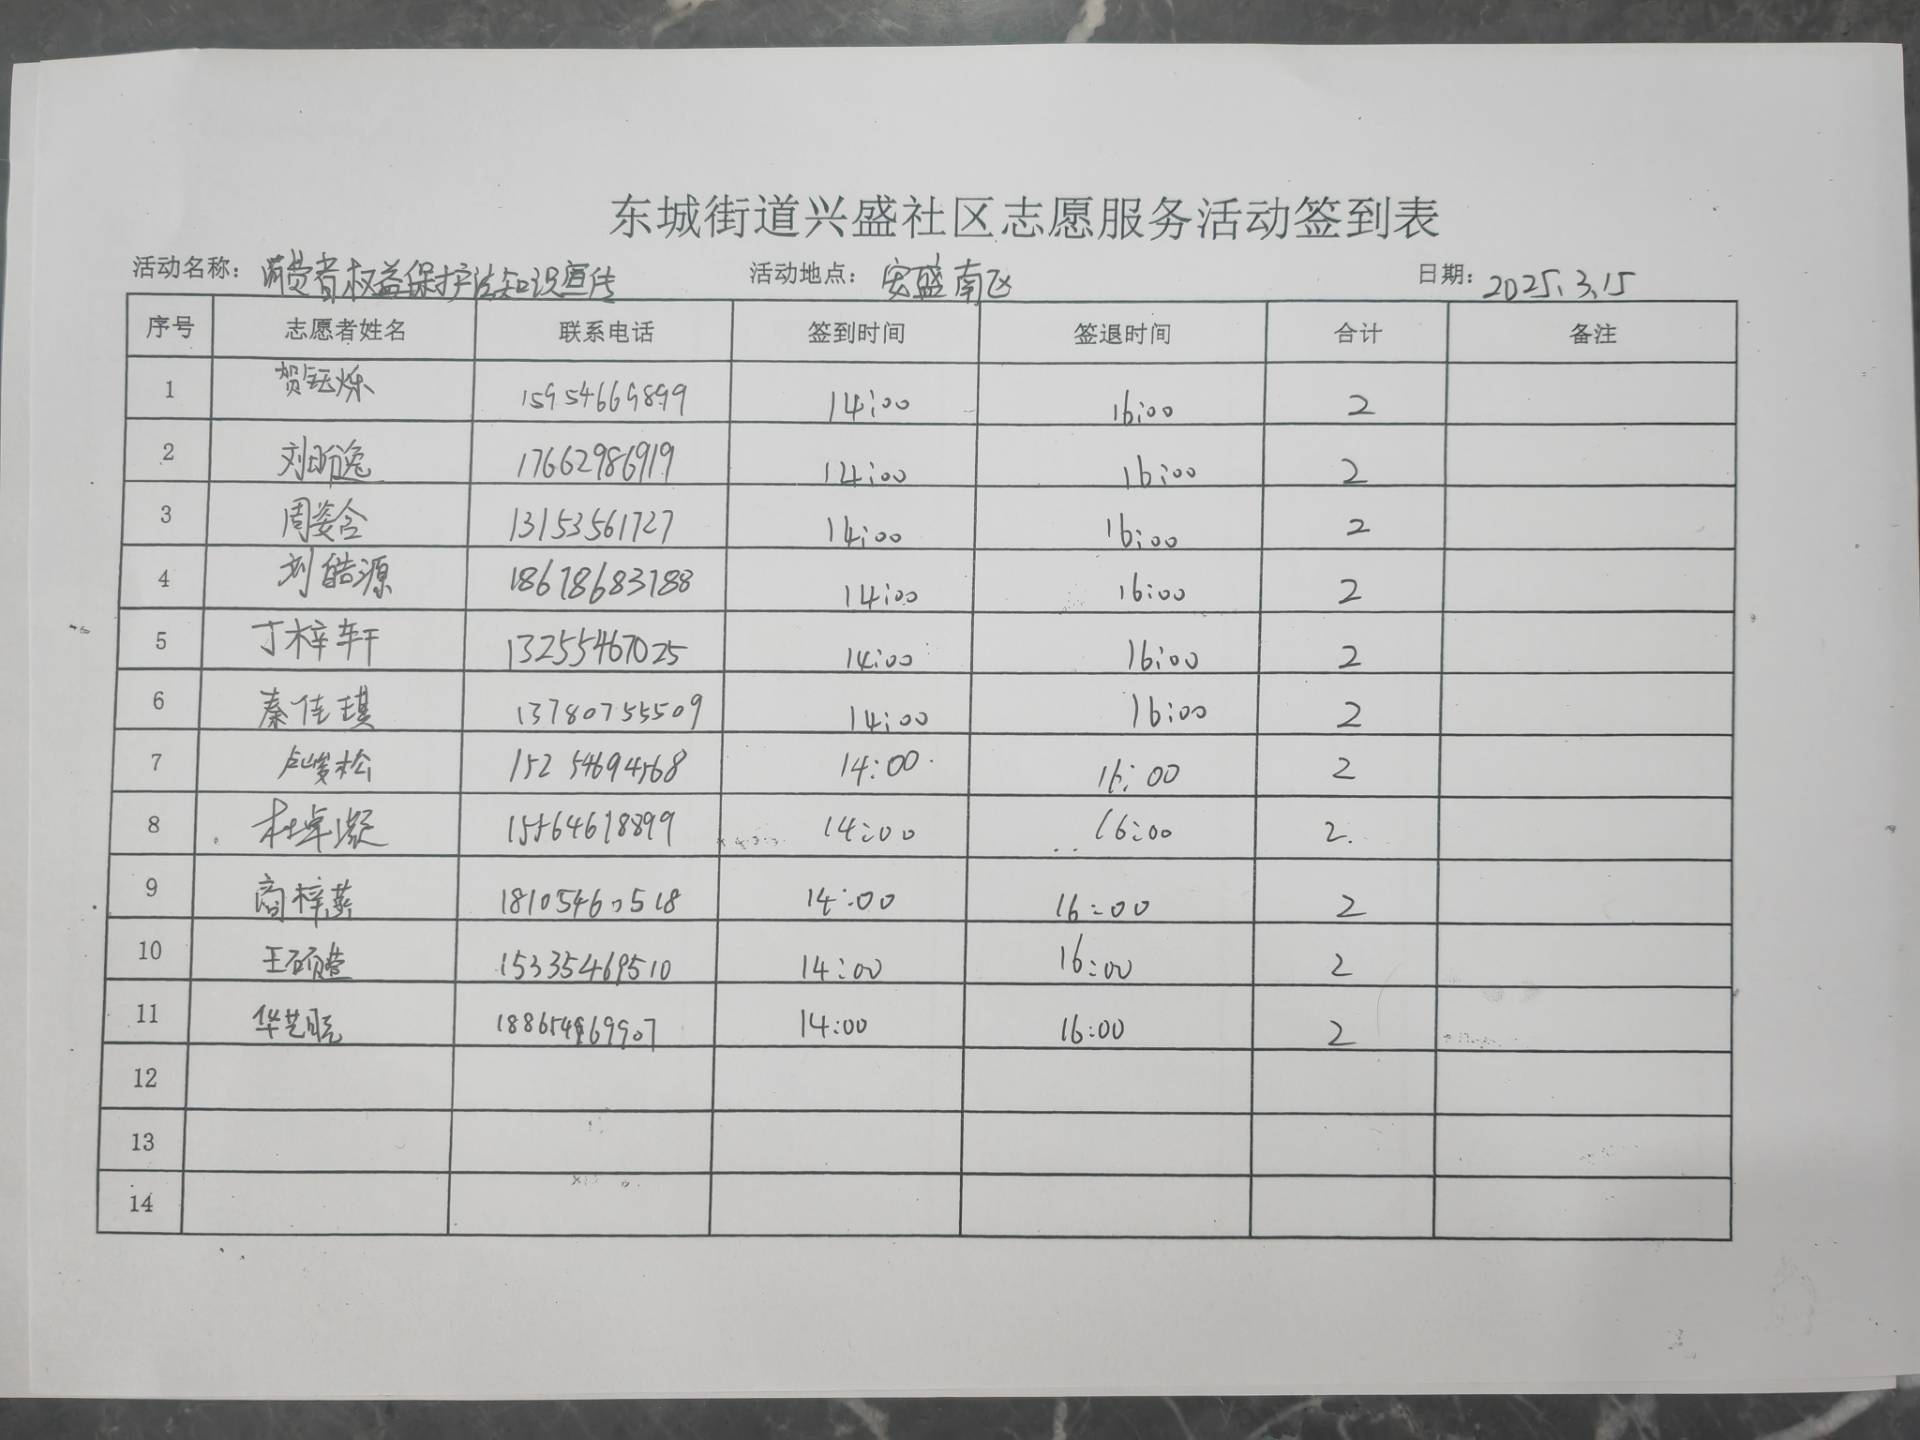 东城街道兴盛社区志愿服务活动签到表
活动名称：消费者权益保护法知识宣传 活动地点：宏盛南区 日期：2025.3.15
序号 志愿者姓名 联系电话 签到时间 签退时间 合计 备注
1 贺钰烁 15954669899 14:00 16:00 2
2 刘昕逸 17662986919 14:00 16:00 2
3 周姿含 13153561727 14:00 16:00 2
4 刘皓源 18678683188 14:00 16:00 2
5 丁梓轩 13255467025 14:00 16:00 2
6 秦佳琪 13780755509 14:00 16:00 2
7 卢峻松 15254694568 14:00 16:00 2
8 杜卓凝 15564618899 14:00 16:00 2
9 商梓燕 18105460518 14:00 16:00 2
10 王硕 15335469510 14:00 16:00 2
11 华艺 14:00 16:00 2
12
13
14